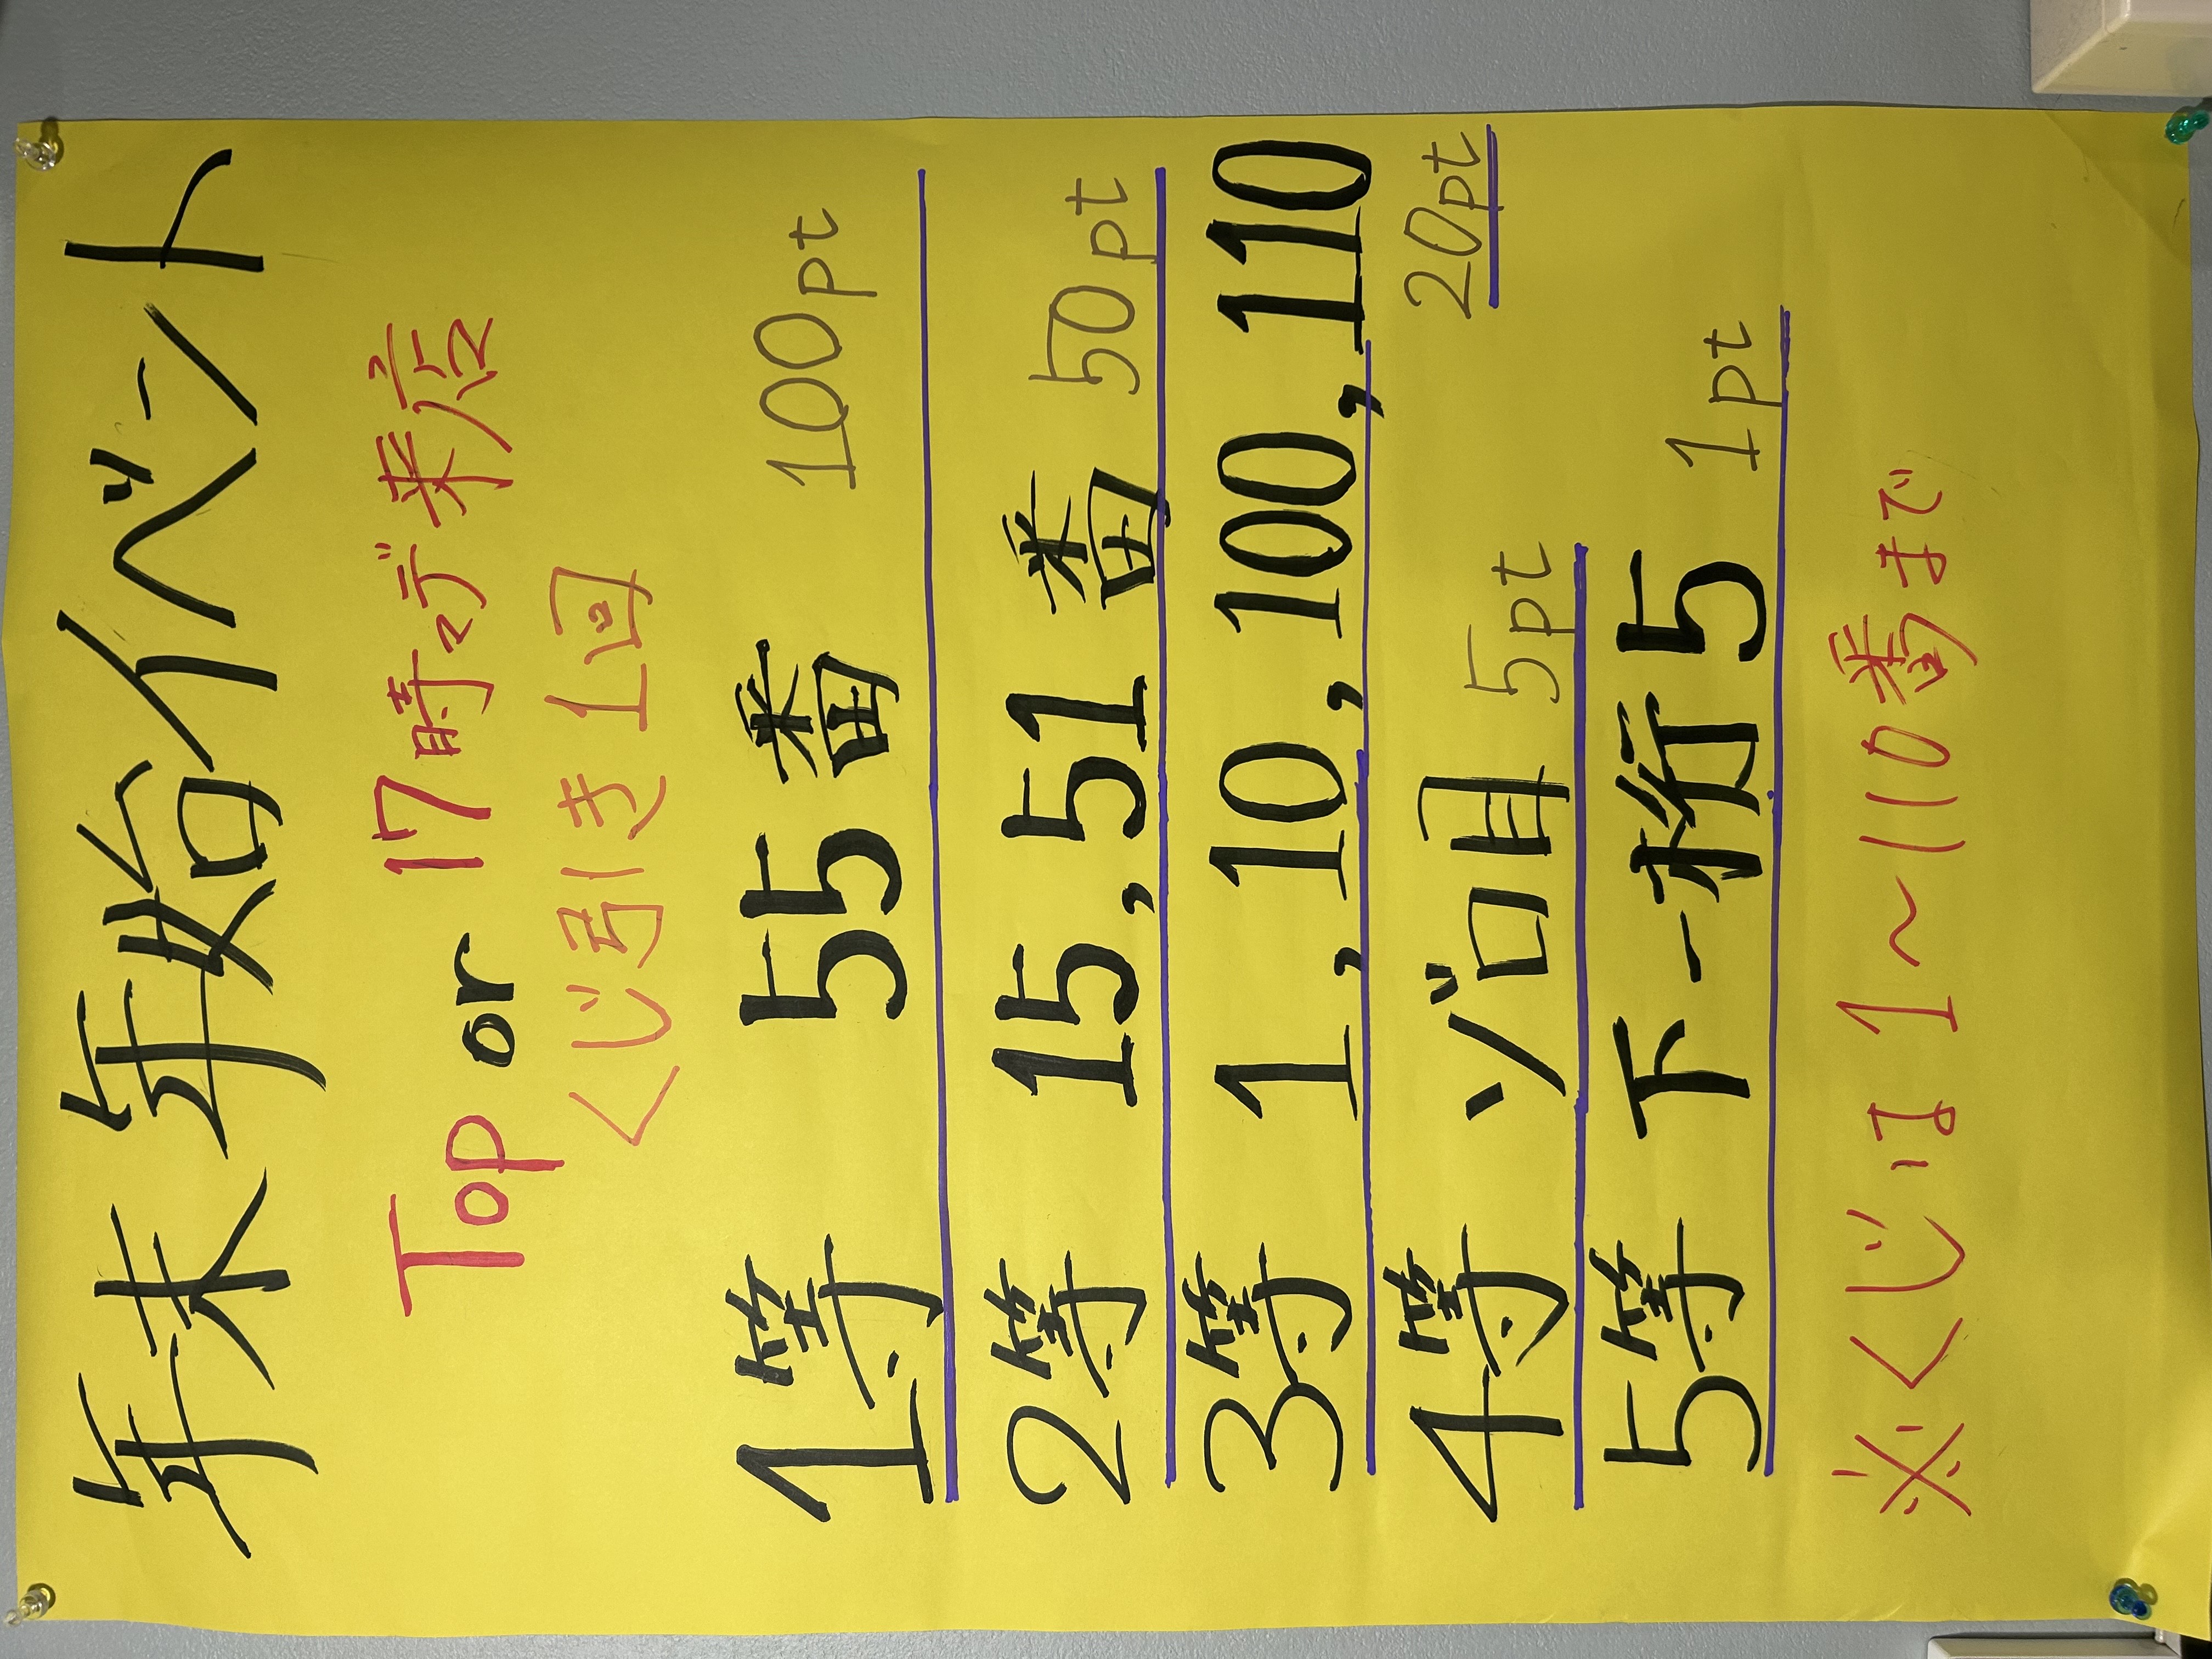 年末年始イベント
Top or 17時マデ来店
くじ引き1回
1等 55番 100pt
2等 15, 51番 50pt
3等 1, 10, 100, 110
20pt
4等 ゾロ目 5pt
5等 下一桁5 1pt
※くじは1〜110番まで